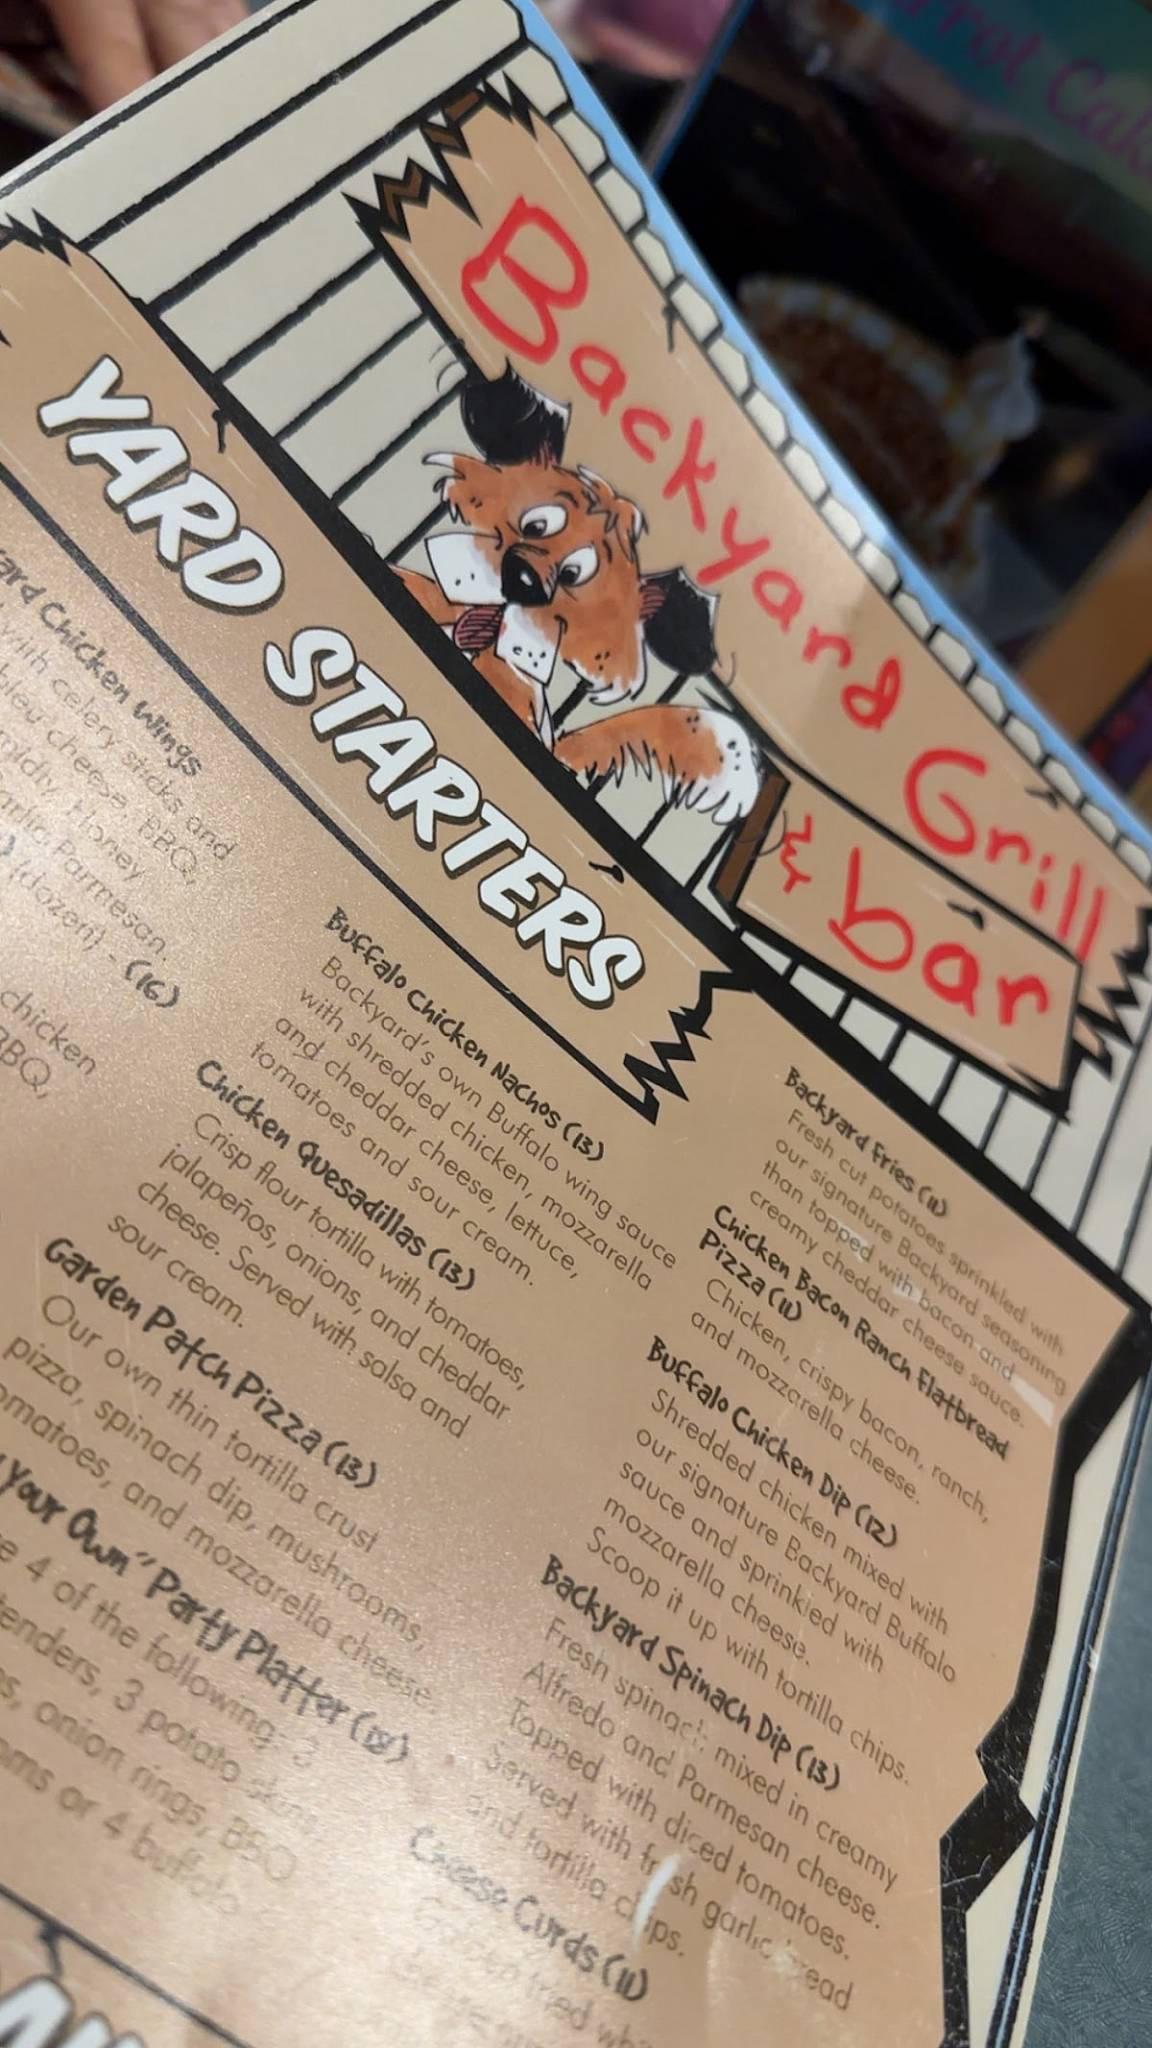 Carrot Cake
Backyard Grill
& bar
YARD STARTERS
Chicken Wings
with celery sticks and
cheese, BBQ,
Honey
Parmesan.
(dozen) - (16)
chicken
BBQ,
Buffalo Chicken Nachos (13)
Backyard's own Buffalo wing sauce
with shredded chicken, mozzarella
and cheddar cheese, lettuce,
tomatoes and sour cream.
Chicken Quesadillas (13)
Crisp flour tortilla with tomatoes,
jalapeños, onions, and cheddar
cheese. Served with salsa and
sour cream.
Garden Patch Pizza (13)
Our own thin tortilla crust
pizza, spinach dip, mushrooms,
tomatoes, and mozzarella cheese.
Your Own" Party Platter (18)
4 of the following: 3
tenders, 3 potato skins
onion rings, BBQ
or 4 buffalo
Backyard Fries (11)
Fresh cut potatoes sprinkled with
our signature Backyard seasoning
than topped with bacon and
creamy cheddar cheese sauce.
Chicken Bacon Ranch Flatbread
Pizza (11)
Chicken, crispy bacon, ranch,
and mozzarella cheese.
Buffalo Chicken Dip (12)
Shredded chicken mixed with
our signature Backyard Buffalo
sauce and sprinkled with
mozzarella cheese.
Scoop it up with tortilla chips.
Backyard Spinach Dip (13)
Fresh spinach mixed in creamy
Alfredo and Parmesan cheese.
Topped with diced tomatoes.
Served with fresh garlic bread
and tortilla chips.
Cheese Curds (11)